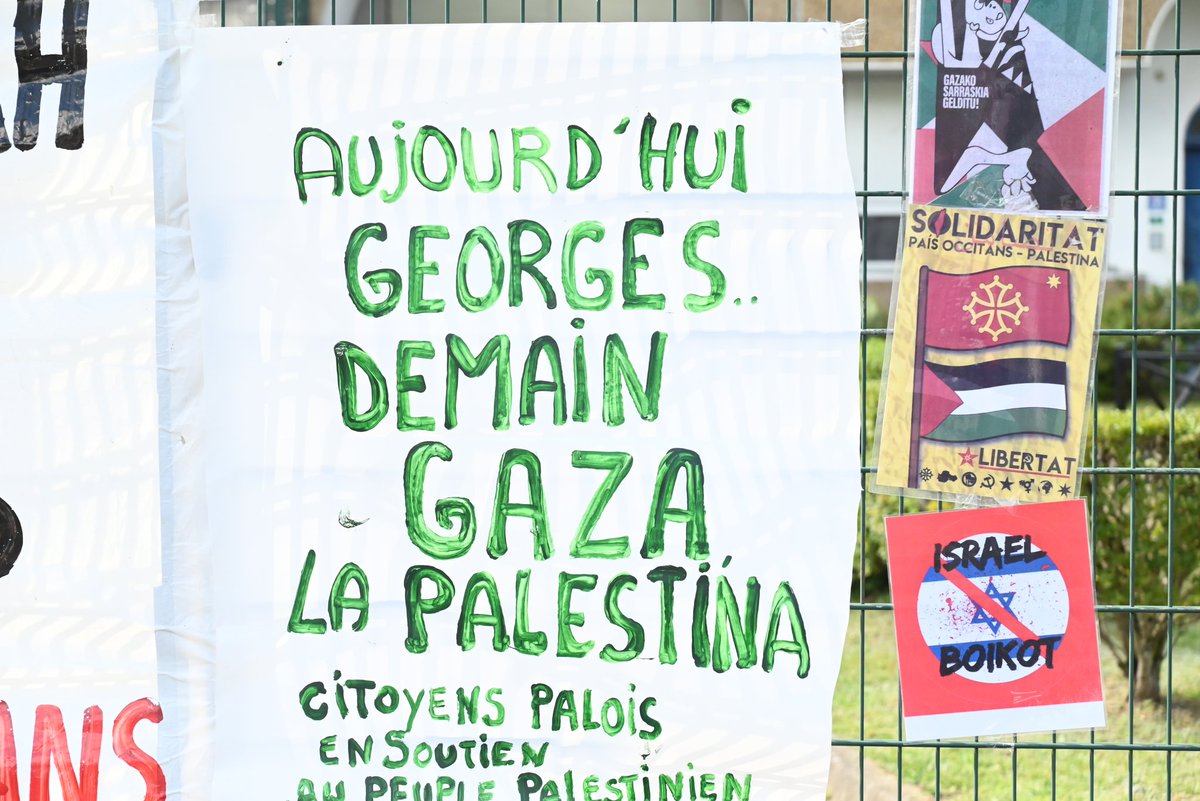 AUJOURD'HUI
GEORGES..
DEMAIN
GAZA
LA PALESTÍNA
CITOYENS PALOIS
EN SOUTIEN
AU PEUPLE PALESTINIEN
GAZAKO
SARRASKIA
GELDITU!
SOLIDARITAT
PAÍS OCCITANS - PALESTINA
LIBERTAT
ISRAEL
BOIKOT